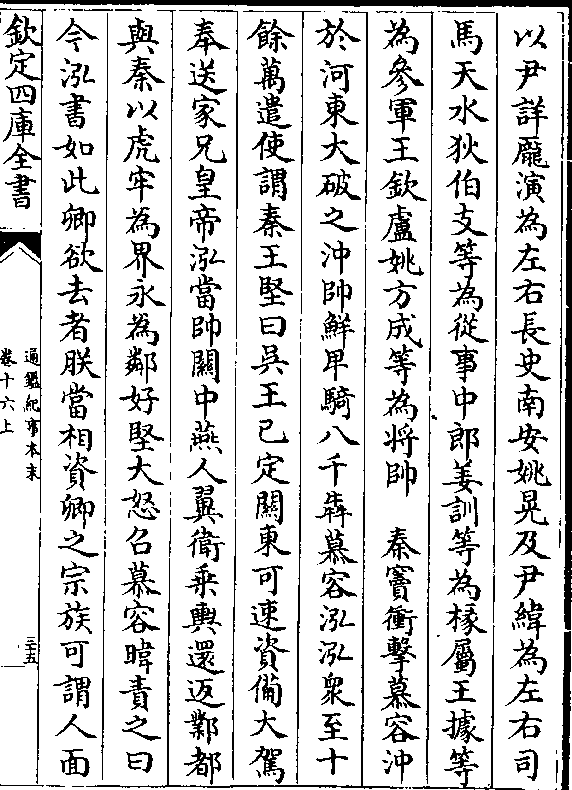 以尹詳龎演為左右長史南安姚晃及尹緯為左右司
馬天水狄伯支等為從事中郎姜訓等為椽屬王據等
為參軍王欽盧姚方成等為將帥　秦竇衝擊慕容沖
於河東大破之沖帥鮮卑騎八千犇慕容泓泓衆至十
餘萬遣使謂秦王堅曰吳王已定關東可速資備大駕
奉送家兄皇帝泓當帥關中燕人翼衛乘輿還返鄴都
與秦以虎牢為界永為鄰好堅大怒召慕容暐責之曰
今泓書如此卿欲去者朕當相資卿之宗族可謂人面
欽定四庫全書
通鑑紀事本末
卷十六上
三十五